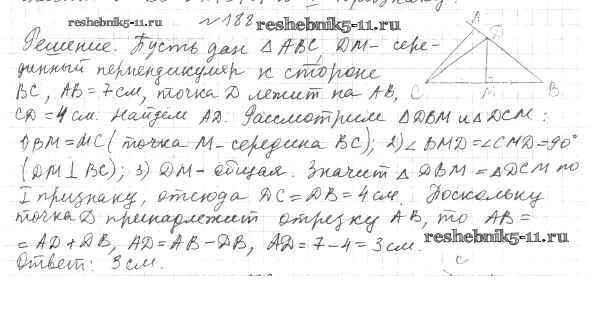 №188
reshebnik5-11.ru
reshebnik5-11.ru
Решение. Пусть дан △ABC, DM- сере-
динный перпендикуляр к стороне
BC, AB=7см, точка D лежит на AB,
CD=4см. Найдём AD. Рассмотрим △DBM и △DCM:
1)BM=MC (точка M-середина BC); 2)∠BMD=∠CMD=90°
(DM⊥BC); 3) DM-общая. Значит △DBM=△DCM по
I признаку, отсюда DC=DB=4см. Поскольку
точка D принадлежит отрезку AB, то AB=
=AD+DB, AD=AB-DB, AD=7-4=3см.
reshebnik5-11.ru
Ответ: 3см.
A
D
C
M
B
C